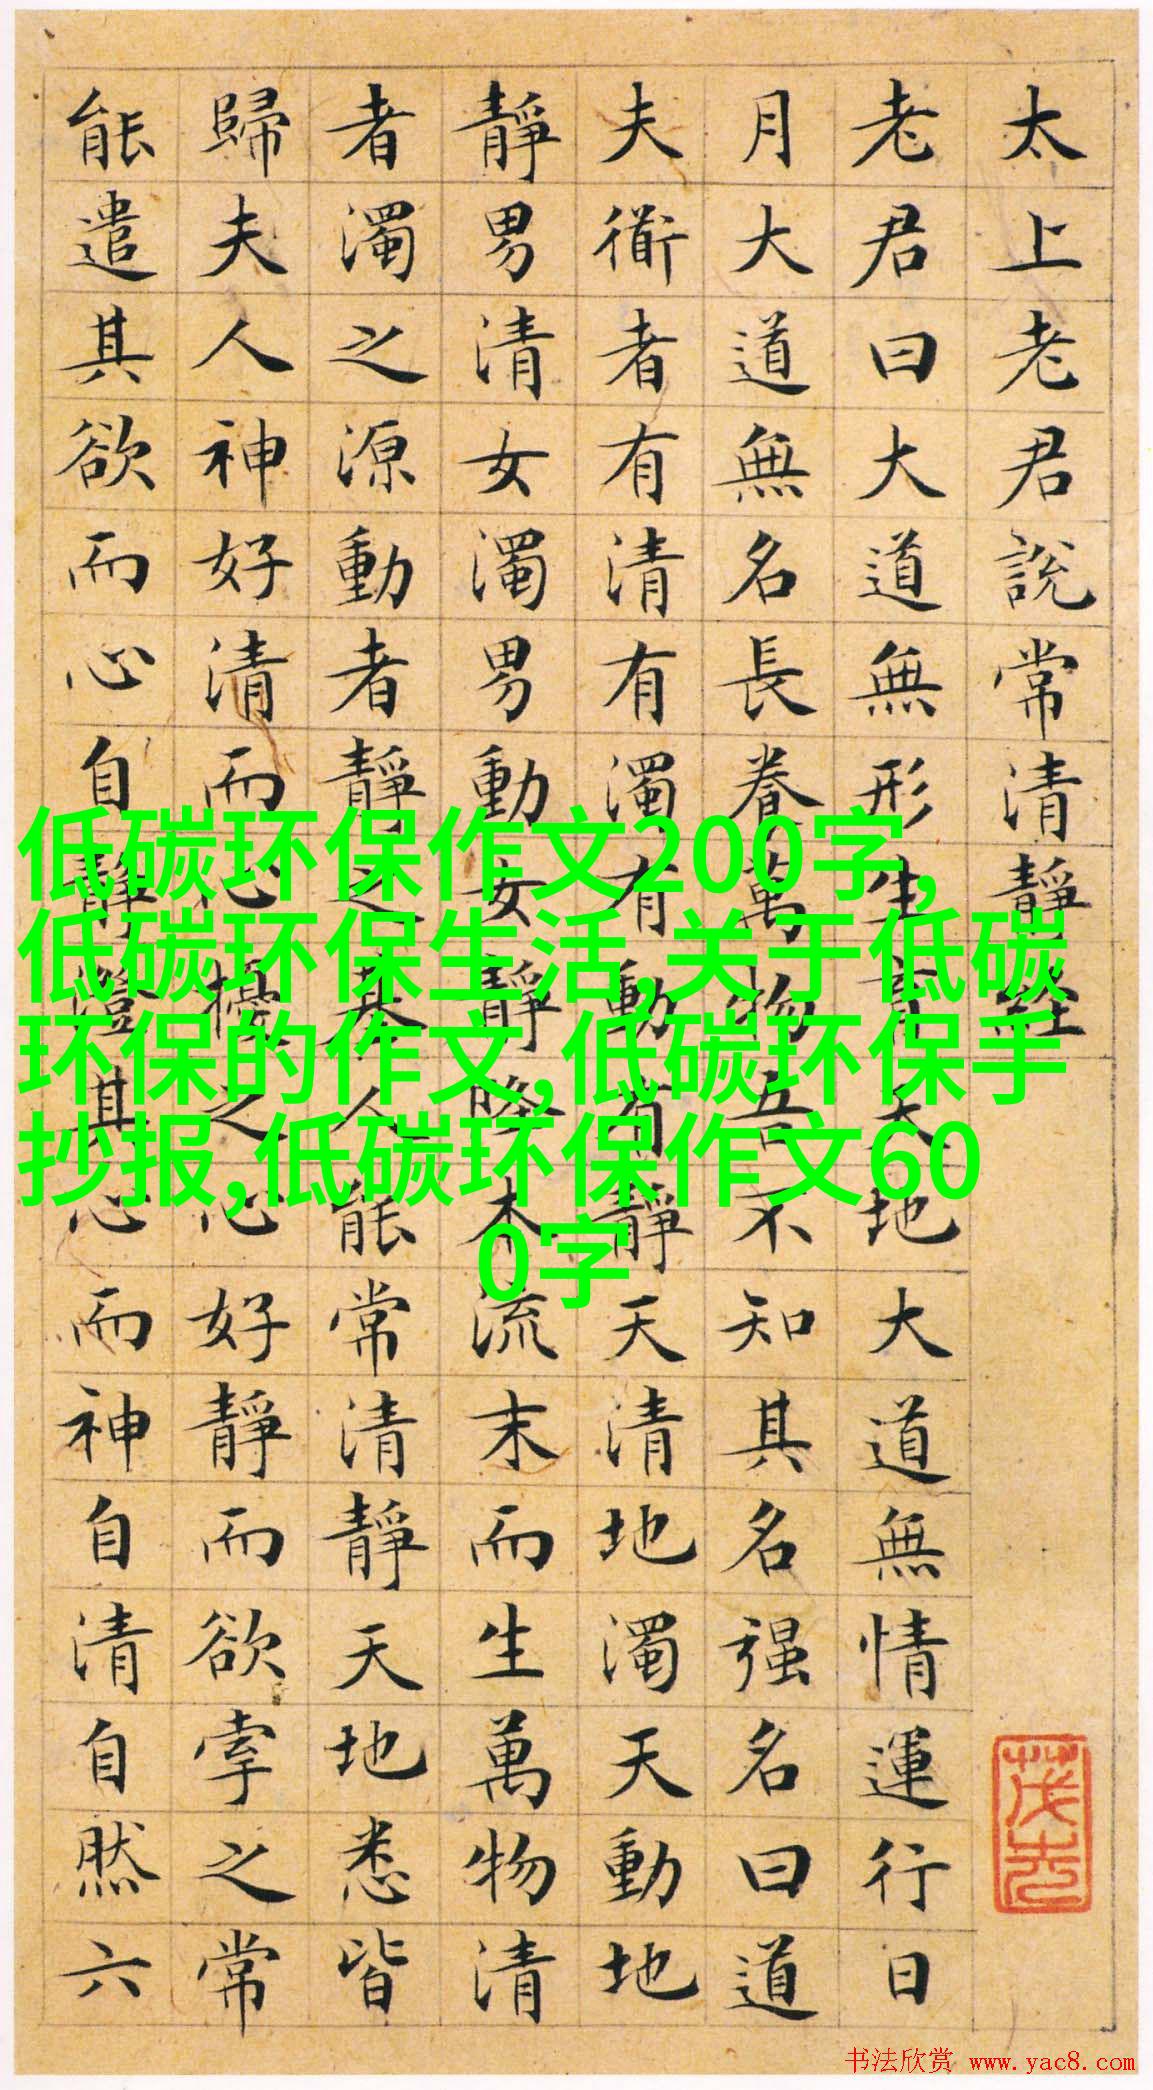 太上老君說常清靜經
老君曰大道無形生育天地大道無情運行日
月大道無名長養萬物吾不知其名强名曰道
夫衜者有清有濁有動有靜天清地濁天動地
靜男清女濁男動女靜降本流末而生萬物清
者濁之源動者靜之基人能常清靜天地悉皆
歸夫人神好清而心擾之心好靜而欲牽之常
能遣其欲而心自靜澄其心而神自清自然六
低碳环保作文200字,
低碳环保生活,关于低碳
环保的作文,低碳环保手
抄报,低碳环保作文60
0字
书法欣赏 www.yac8.com